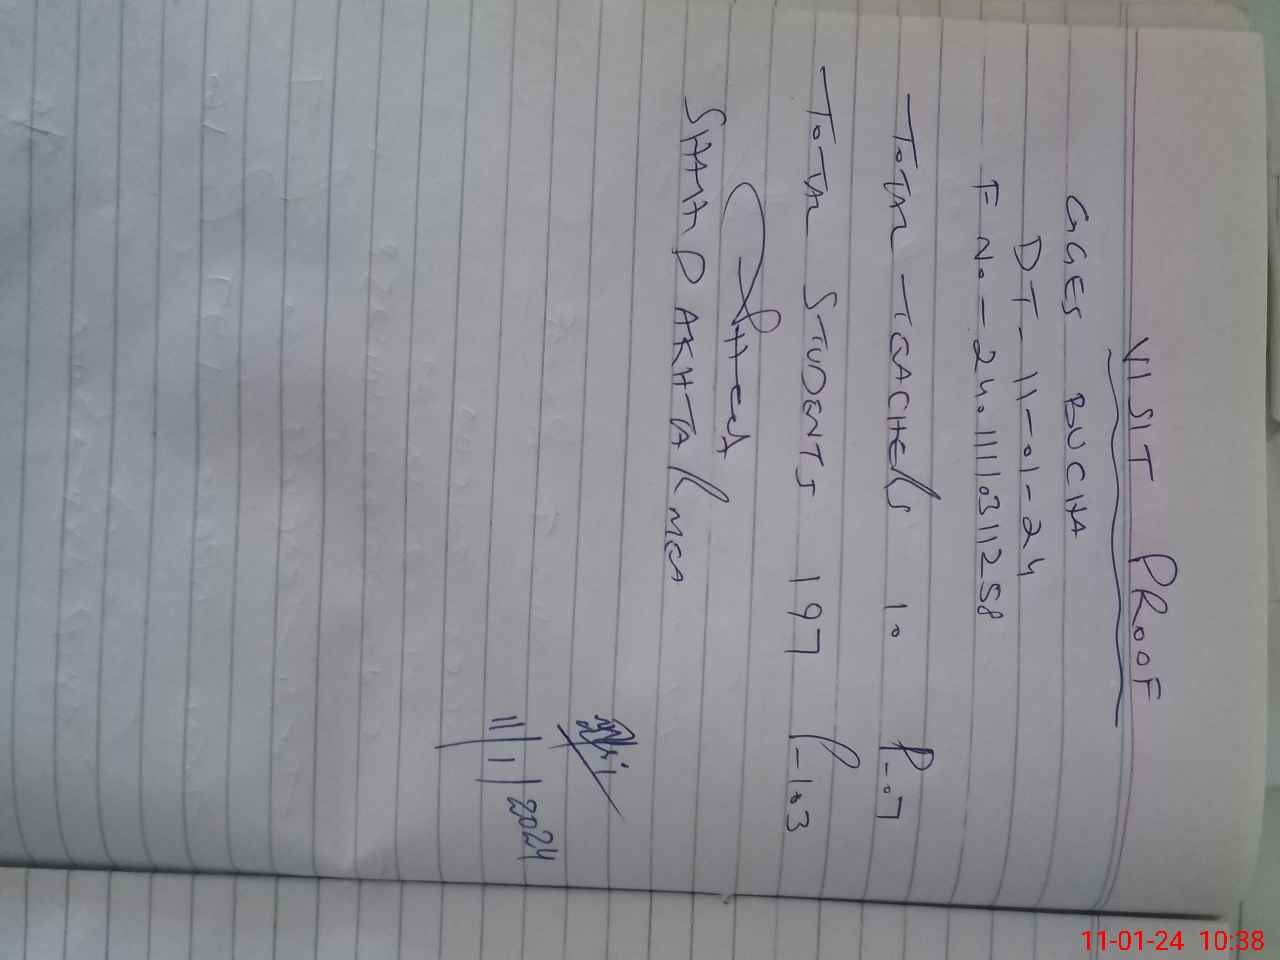 VISIT PROOF
GGES BUCHA
DT- 11-01-24
F No - 2401110311258
TOTAL TEACHERS 10 P-07
TOTAL STUDENTS 197 P-103
SHAHD AKHTAR MEA
11/1/2024
11-01-24 10:38